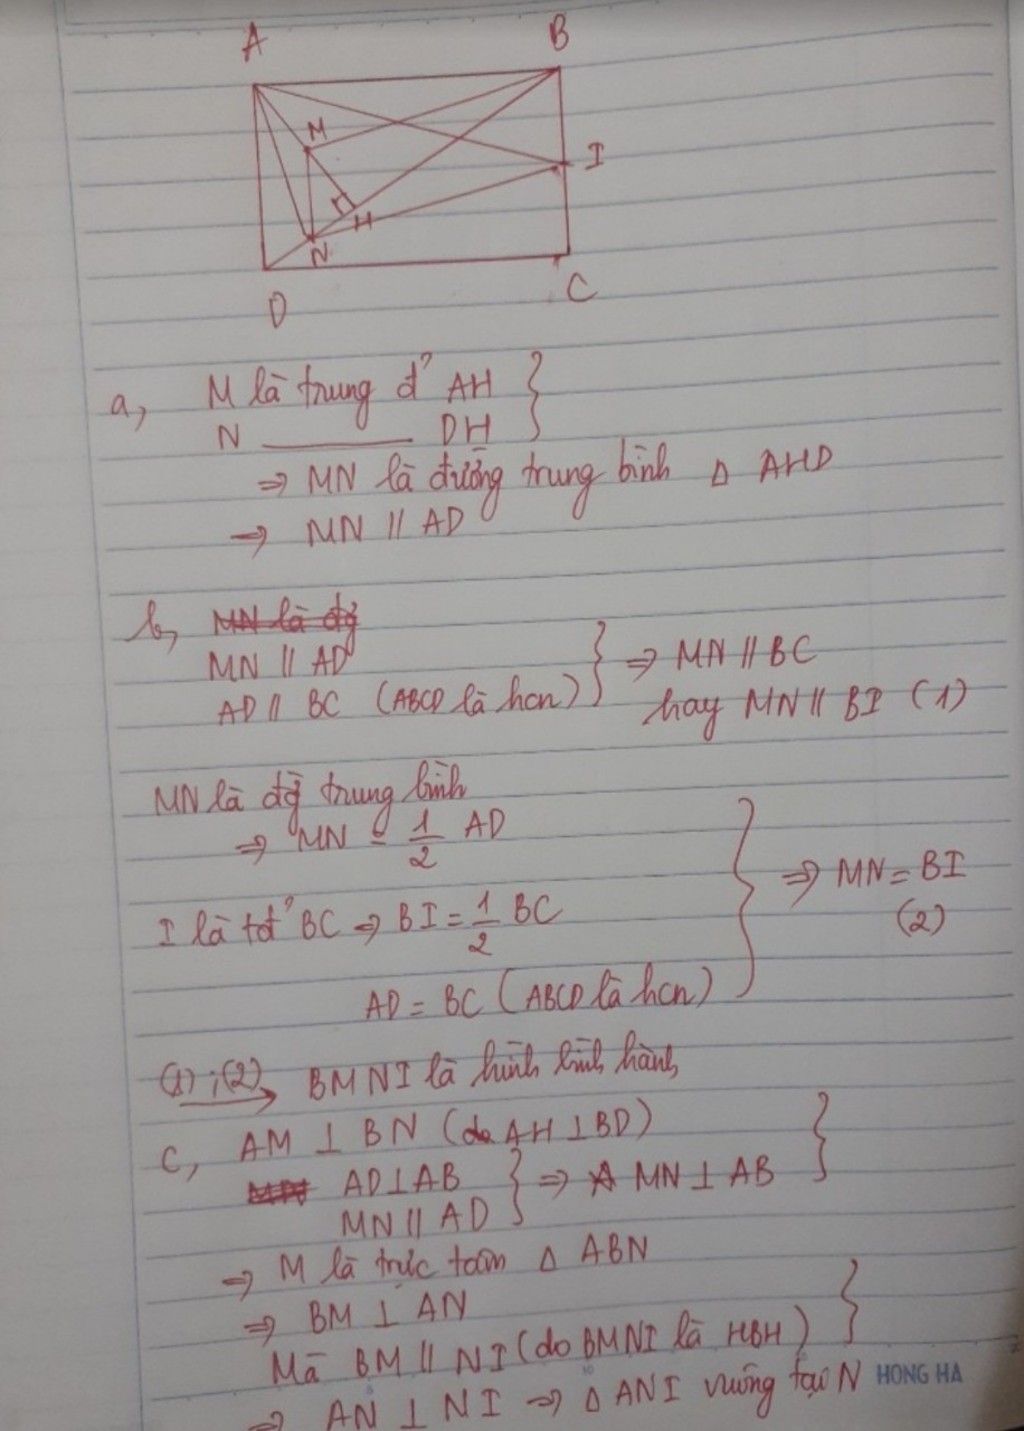 A B
M
I
H
N
D C
a, M là trung đ' AH
N ———— DH
⇒ MN là đường trung bình Δ AHD
⇒ MN // AD
b, MN là đg
MN // AD
AD // BC (ABCD là hcn) } ⇒ MN // BC
hay MN // BI (1)
MN là đg trung bình
⇒ MN = 1/2 AD
I là tđ' BC ⇒ BI = 1/2 BC
AD = BC (ABCD là hcn) } ⇒ MN = BI
(2)
(1) ; (2) → BMNI là hình bình hành
c, AM ⊥ BN (do AH ⊥ BD)
MN AD ⊥ AB
MN // AD } ⇒ A MN ⊥ AB }
⇒ M là trực tâm Δ ABN
⇒ BM ⊥ AN
Mà BM // NI (do BMNI là HBH) }
⇒ AN ⊥ NI ⇒ Δ ANI vuông tại N
HONG HA